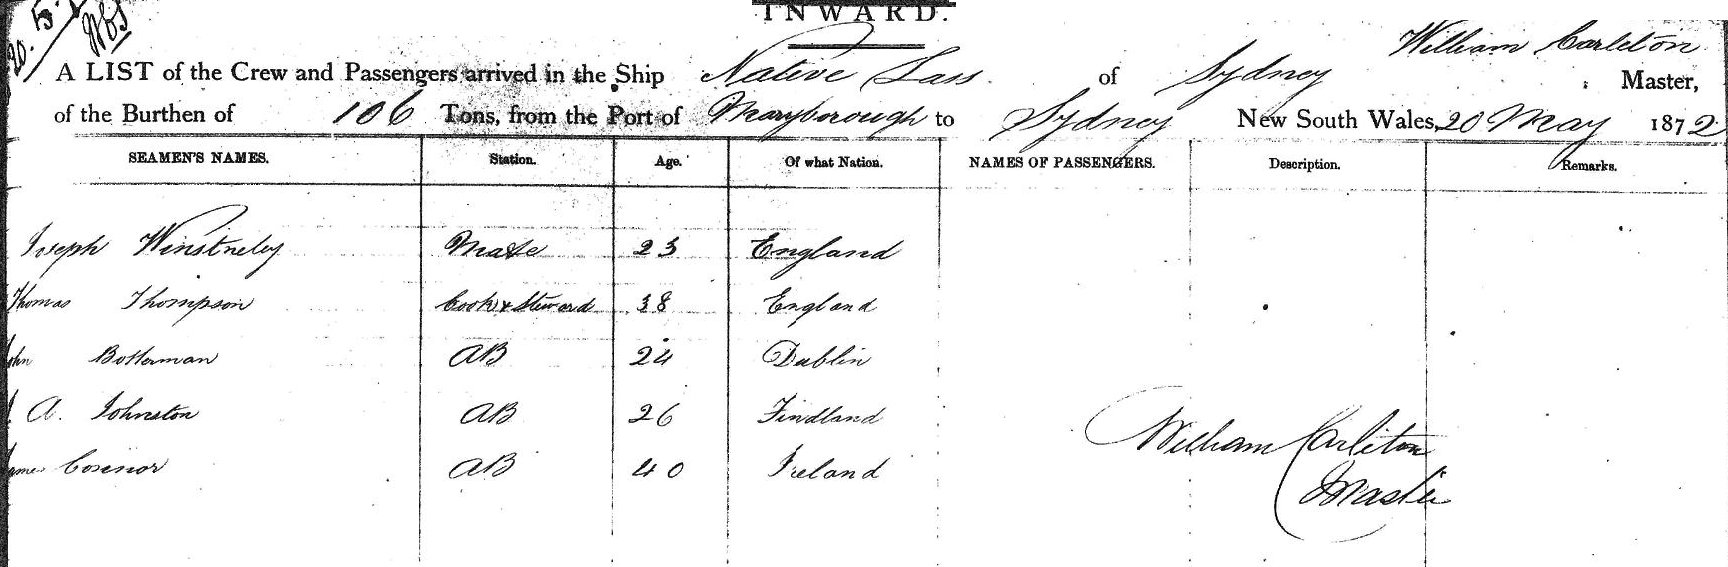 20. 5.
INWARD.
William Carleton
A LIST of the Crew and Passengers arrived in the Ship Native Lass of Sydney , Master,
of the Burthen of 106 Tons, from the Port of Maryborough to Sydney New South Wales, 20 May 1872
SEAMEN'S NAMES. Station. Age. Of what Nation. NAMES OF PASSENGERS. Description. Remarks.
Joseph Winstneley Mate 23 England
Thomas Thompson Cook & Steward 38 England
John Botterman AB 24 Dublin
A. Johnston AB 26 Findland
James Connor AB 40 Ireland
William Carleton
Master